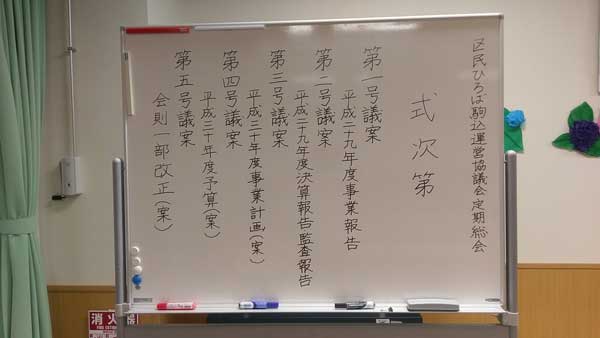 区民ひろば駒込運営協議会定期総会
式次第
第一号議案
平成二十九年度事業報告
第二号議案
平成二十九年度決算報告監査報告
第三号議案
平成三十年度事業計画(案)
第四号議案
平成三十年度予算(案)
第五号議案
会則一部改正(案)
消火器